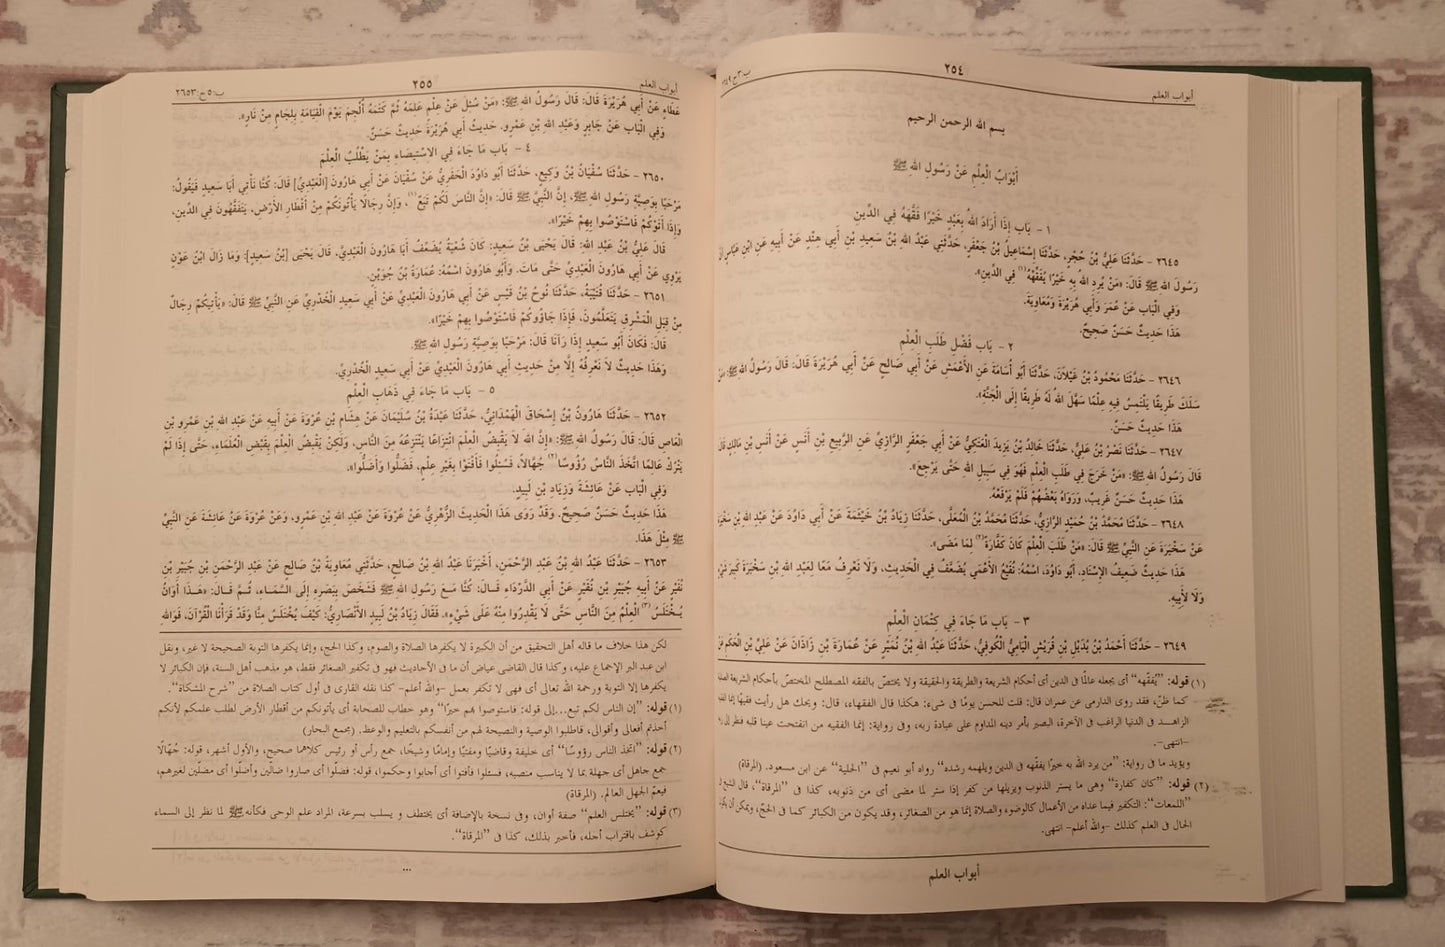 أبواب العلم
٢٥٤
ب:٣ ح:٢٦٤٩
بسم الله الرحمن الرحيم
أَبْوَابُ الْعِلْمِ عَنْ رَسُولِ الله ﷺ
١ - بَاب إِذَا أَرَادَ اللهُ بِعَبْدٍ خَيْرًا فَقَّهَهُ فِي الدِّينِ
٢٦٤٥ - حَدَّثَنَا عَلِيُّ بْنُ حُجْرٍ، حَدَّثَنَا إِسْمَاعِيلُ بْنُ جَعْفَرٍ، حَدَّثَنِي عَبْدُ اللهِ بْنُ سَعِيدِ بْنِ أَبِي هِنْدٍ عَنْ أَبِيهِ عَنِ ابْنِ عَبَّاسٍ أَنَّ
رَسُولَ اللهِ ﷺ قَالَ: «مَنْ يُرِدِ اللهُ بِهِ خَيْرًا يُفَقِّهْهُ(١) فِي الدِّينِ».
وَفِي الْبَاب عَنْ عُمَرَ وَأَبِي هُرَيْرَةَ وَمُعَاوِيَةَ.
هَذَا حَدِيثٌ حَسَنٌ صَحِيحٌ.
٢ - بَاب فَضْلِ طَلَبِ الْعِلْمِ
٢٦٤٦ - حَدَّثَنَا مَحْمُودُ بْنُ غَيْلَانَ، حَدَّثَنَا أَبُو أُسَامَةَ عَنِ الأَعْمَشِ عَنْ أَبِي صَالِحٍ عَنْ أَبِي هُرَيْرَةَ قَالَ: قَالَ رَسُولُ اللهِ ﷺ: «مَنْ
سَلَكَ طَرِيقًا يَلْتَمِسُ فِيهِ عِلْمًا سَهَّلَ اللهُ لَهُ طَرِيقًا إِلَى الْجَنَّةِ».
هَذَا حَدِيثٌ حَسَنٌ.
٢٦٤٧ - حَدَّثَنَا نَصْرُ بْنُ عَلِيٍّ، حَدَّثَنَا خَالِدُ بْنُ يَزِيدَ الْعَتَكِيُّ عَنْ أَبِي جَعْفَرٍ الرَّازِيِّ عَنِ الرَّبِيعِ بْنِ أَنَسٍ عَنْ أَنَسِ بْنِ مَالِكٍ قَالَ
قَالَ رَسُولُ اللهِ ﷺ: «مَنْ خَرَجَ فِي طَلَبِ الْعِلْمِ فَهُوَ فِي سَبِيلِ اللهِ حَتَّى يَرْجِعَ».
هَذَا حَدِيثٌ حَسَنٌ غَرِيبٌ، وَرَوَاهُ بَعْضُهُمْ فَلَمْ يَرْفَعْهُ.
٢٦٤٨ - حَدَّثَنَا مُحَمَّدُ بْنُ حُمَيْدٍ الرَّازِيُّ، حَدَّثَنَا مُحَمَّدُ بْنُ الْمُعَلَّى، حَدَّثَنَا زِيَادُ بْنُ خَيْثَمَةَ عَنْ أَبِي دَاوُدَ عَنْ عَبْدِ اللهِ بْنِ سَخْبَرَةَ
عَنْ سَخْبَرَةَ عَنِ النَّبِيِّ ﷺ قَالَ: «مَنْ طَلَبَ الْعِلْمَ كَانَ كَفَّارَةً(٢) لِمَا مَضَى».
هَذَا حَدِيثٌ ضَعِيفُ الإِسْنَادِ، أَبُو دَاوُدَ، اسْمُهُ: نُفَيْعٌ الأَعْمَى يُضَعَّفُ فِي الْحَدِيثِ، وَلَا نَعْرِفُ مَعًا لِعَبْدِ اللهِ بْنِ سَخْبَرَةَ كَبِيرَ شَيْءٍ
وَلَا لِأَبِيهِ.
٣ - بَاب مَا جَاءَ فِي كِتْمَانِ الْعِلْمِ
٢٦٤٩ - حَدَّثَنَا أَحْمَدُ بْنُ بُدَيْلِ بْنِ قُرَيْشٍ الْيَامِيُّ الْكُوفِيُّ، حَدَّثَنَا عَبْدُ اللهِ بْنُ نُمَيْرٍ عَنْ عُمَارَةَ بْنِ زَاذَانَ عَنْ عَلِيِّ بْنِ الْحَكَمِ عَنْ
(١) قوله: ”يُفَقِّهه“ أى يجعله عالمًا فى الدين أى أحكام الشريعة والطريقة والحقيقة ولا يختصّ بالفقه المصطلح المختصّ بأحكام الشريعة
كما ظنّ، فقد روى الدارمى عن عمران قال: قلت للحسن يومًا فى شىء: هكذا قال الفقهاء، قال: ويحك هل رأيت فقيهًا إنما
الزاهد فى الدنيا الراغب فى الآخرة، البصير بأمر دينه المداوم على عبادة ربه، وفى رواية: إنما الفقيه من انفتحت عينا قلبه فنظر إلى
-انتهى-.
ويؤيد ما فى رواية: ”من يرد الله به خيرًا يفقّهه فى الدين ويلهمه رشده“ رواه أبو نعيم فى ”الحلية“ عن ابن مسعود. (المرقاة)
(٢) قوله: ”كان كفارة“ وهى ما يستر الذنوب ويزيلها من كفر إذا ستر لما مضى أى من ذنوبه، كذا فى ”المرقاة“، قال الشيخ
”اللمعات“: التكفير فيما عداه من الأعمال كالوضوء والصلاة إنما هو من الصغائر، وقد يكون من الكبائر كما فى الحجّ، ويمكن أن
الحال فى العلم كذلك -والله أعلم- انتهى.
أبواب العلم
أبواب العلم
٢٥٥
ب:٥ ح:٢٦٥٣
عَطَاءٍ عَنْ أَبِي هُرَيْرَةَ قَالَ: قَالَ رَسُولُ اللهِ ﷺ: «مَنْ سُئِلَ عَنْ عِلْمٍ عَلِمَهُ ثُمَّ كَتَمَهُ أُلْجِمَ يَوْمَ الْقِيَامَةِ بِلِجَامٍ مِنْ نَارٍ».
وَفِي الْبَاب عَنْ جَابِرٍ وَعَبْدِ اللهِ بْنِ عَمْرٍو. حَدِيثُ أَبِي هُرَيْرَةَ حَدِيثٌ حَسَنٌ.
٤ - بَاب مَا جَاءَ فِي الاسْتِيصَاءِ بِمَنْ يَطْلُبُ الْعِلْمَ
٢٦٥٠ - حَدَّثَنَا سُفْيَانُ بْنُ وَكِيعٍ، حَدَّثَنَا أَبُو دَاوُدَ الْحَفَرِيُّ عَنْ سُفْيَانَ عَنْ أَبِي هَارُونَ [الْعَبْدِيِّ] قَالَ: كُنَّا نَأْتِي أَبَا سَعِيدٍ فَيَقُولُ:
مَرْحَبًا بِوَصِيَّةِ رَسُولِ اللهِ ﷺ، إِنَّ النَّبِيَّ ﷺ قَالَ: «إِنَّ النَّاسَ لَكُمْ تَبَعٌ(١)، وَإِنَّ رِجَالًا يَأْتُونَكُمْ مِنْ أَقْطَارِ الأَرْضِ، يَتَفَقَّهُونَ فِي الدِّينِ،
وَإِذَا أَتَوْكُمْ فَاسْتَوْصُوا بِهِمْ خَيْرًا».
قَالَ عَلِيُّ بْنُ عَبْدِ اللهِ: قَالَ يَحْيَى بْنُ سَعِيدٍ: كَانَ شُعْبَةُ يُضَعِّفُ أَبَا هَارُونَ الْعَبْدِيَّ. قَالَ يَحْيَى [بْنُ سَعِيدٍ]: وَمَا زَالَ ابْنُ عَوْنٍ
يَرْوِي عَنْ أَبِي هَارُونَ الْعَبْدِيِّ حَتَّى مَاتَ. وَأَبُو هَارُونَ اسْمُهُ: عُمَارَةُ بْنُ جُوَيْنٍ.
٢٦٥١ - حَدَّثَنَا قُتَيْبَةُ، حَدَّثَنَا نُوحُ بْنُ قَيْسٍ عَنْ أَبِي هَارُونَ الْعَبْدِيِّ عَنْ أَبِي سَعِيدٍ الْخُدْرِيِّ عَنِ النَّبِيِّ ﷺ قَالَ: «يَأْتِيكُمْ رِجَالٌ
مِنْ قِبَلِ الْمَشْرِقِ يَتَعَلَّمُونَ، فَإِذَا جَاؤُوكُمْ فَاسْتَوْصُوا بِهِمْ خَيْرًا».
قَالَ: فَكَانَ أَبُو سَعِيدٍ إِذَا رَآنَا قَالَ: مَرْحَبًا بِوَصِيَّةِ رَسُولِ اللهِ ﷺ.
وَهَذَا حَدِيثٌ لَا نَعْرِفُهُ إِلَّا مِنْ حَدِيثِ أَبِي هَارُونَ الْعَبْدِيِّ عَنْ أَبِي سَعِيدٍ الْخُدْرِيِّ.
٥ - بَاب مَا جَاءَ فِي ذَهَابِ الْعِلْمِ
٢٦٥٢ - حَدَّثَنَا هَارُونُ بْنُ إِسْحَاقَ الْهَمْدَانِيُّ، حَدَّثَنَا عَبْدَةُ بْنُ سُلَيْمَانَ عَنْ هِشَامِ بْنِ عُرْوَةَ عَنْ أَبِيهِ عَنْ عَبْدِ اللهِ بْنِ عَمْرِو بْنِ
الْعَاصِ قَالَ: قَالَ رَسُولُ اللهِ ﷺ: «إِنَّ اللهَ لَا يَقْبِضُ الْعِلْمَ انْتِزَاعًا يَنْتَزِعُهُ مِنَ النَّاسِ، وَلَكِنْ يَقْبِضُ الْعِلْمَ بِقَبْضِ الْعُلَمَاءِ، حَتَّى إِذَا لَمْ
يَتْرُكْ عَالِمًا اتَّخَذَ النَّاسُ رُؤُوسًا(٢) جُهَّالًا، فَسُئِلُوا فَأَفْتَوْا بِغَيْرِ عِلْمٍ، فَضَلُّوا وَأَضَلُّوا».
وَفِي الْبَاب عَنْ عَائِشَةَ وَزِيَادِ بْنِ لَبِيدٍ.
هَذَا حَدِيثٌ حَسَنٌ صَحِيحٌ. وَقَدْ رَوَى هَذَا الْحَدِيثَ الزُّهْرِيُّ عَنْ عُرْوَةَ عَنْ عَبْدِ اللهِ بْنِ عَمْرٍو، وَعَنْ عُرْوَةَ عَنْ عَائِشَةَ عَنِ النَّبِيِّ
ﷺ مِثْلَ هَذَا.
٢٦٥٣ - حَدَّثَنَا عَبْدُ اللهِ بْنُ عَبْدِ الرَّحْمَنِ، أَخْبَرَنَا عَبْدُ اللهِ بْنُ صَالِحٍ، حَدَّثَنِي مُعَاوِيَةُ بْنُ صَالِحٍ عَنْ عَبْدِ الرَّحْمَنِ بْنِ جُبَيْرِ بْنِ
نُفَيْرٍ عَنْ أَبِيهِ جُبَيْرِ بْنِ نُفَيْرٍ عَنْ أَبِي الدَّرْدَاءِ قَالَ: كُنَّا مَعَ رَسُولِ اللهِ ﷺ فَشَخَصَ بِبَصَرِهِ إِلَى السَّمَاءِ، ثُمَّ قَالَ: «هَذَا أَوَانُ
يُخْتَلَسُ(٣) الْعِلْمُ مِنَ النَّاسِ حَتَّى لَا يَقْدِرُوا مِنْهُ عَلَى شَيْءٍ». فَقَالَ زِيَادُ بْنُ لَبِيدٍ الأَنْصَارِيُّ: كَيْفَ يُخْتَلَسُ مِنَّا وَقَدْ قَرَأْنَا الْقُرْآنَ، فَوَاللهِ
لكن هذا خلاف ما قاله أهل التحقيق من أن الكبيرة لا يكفرها الصلاة والصوم، وكذا الحج، وإنما يكفرها التوبة الصحيحة لا غير، ونقل
ابن عبد البر الإجماع عليه، وكذا قال القاضى عياض أن ما فى الأحاديث فهو فى تكفير الصغائر فقط، هو مذهب أهل السنة، فإن الكبائر لا
يكفرها إلا التوبة ورحمة الله تعالى أى فهى لا تكفر بعمل -والله أعلم- كذا نقله القارى فى أول كتاب الصلاة من ”شرح المشكاة“.
(١) قوله: ”إن الناس لكم تبع...إلى قوله: فاستوصوا بهم خيرًا“ وهو خطاب للصحابة أى يأتونكم من أقطار الأرض لطلب علمكم لأنكم
أخذتم أفعالى وأقوالى، فاطلبوا الوصية والنصيحة لهم من أنفسكم بالتعليم والوعظ. (مجمع البحار)
(٢) قوله: ”اتخذ الناس رؤوسًا“ أى خليفة وقاضيًا ومفتيًا وإمامًا وشيخًا، جمع رأس أو رئيس كلاهما صحيح، والأول أشهر، قوله: جُهّالًا
جمع جاهل أى جهلة بما لا يناسب منصبه، فسئلوا فأفتوا أى أجابوا وحكموا، قوله: فضلّوا أى صاروا ضالّين وأضلّوا أى مضلّين لغيرهم،
فيعمّ الجهل العالم. (المرقاة)
(٣) قوله: ”يختلس العلم“ صفة أوان، وفى نسخة بالإضافة أى يختطف و يسلب بسرعة، المراد علم الوحى فكأنه ﷺ لما نظر إلى السماء
كوشف باقتراب أجله، فأخبر بذلك، كذا فى ”المرقاة“.
...